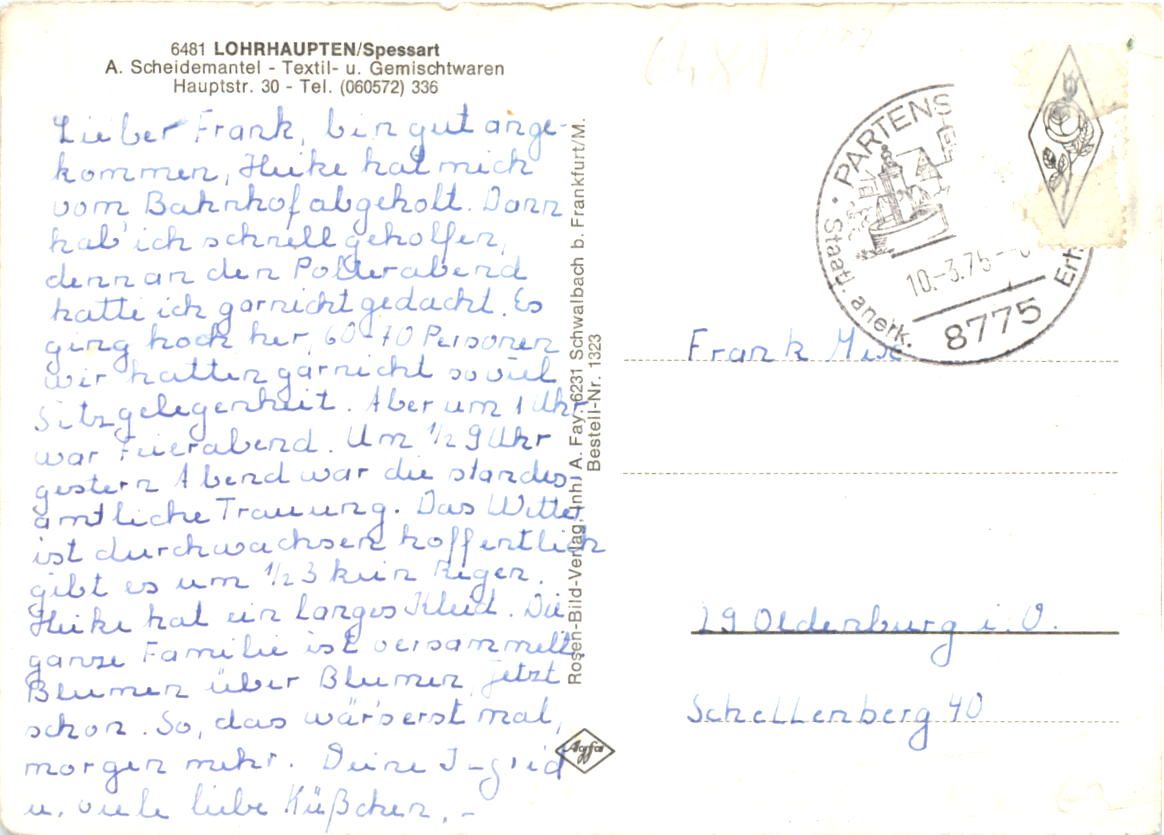 6481 LOHRHAUPTEN/Spessart
A. Scheidemantel - Textil- u. Gemischtwaren
Hauptstr. 30 - Tel. (060572) 336
Lieber Frank, bin gut ange-
kommen, Heike hat mich
vom Bahnhof abgeholt. Dann
hab' ich schnell geholfen,
denn an den Polterabend
hatte ich garnicht gedacht. Es
ging hoch her, 60-70 Personen
wir hatten garnicht soviel
Sitzgelegenheit. Aber um 1 Uhr
war Feierabend. Um 1/2 9 Uhr
gestern Abend war die standes-
amtliche Trauung. Das Wetter
ist durchwachsen hoffentlich
gibt es um 1/2 3 kein Regen.
Heike hat ein langes Kleid. Die
ganze Familie ist versammelt,
Blumen über Blumen, jetzt
schon. So, das wär's erst mal,
morgen mehr. Deine
u. viele liebe Küßchen,.-
Rosen-Bild-Verlag, Inh. A. Fay, 6231 Schwalbach b. Frankfurt/M.
Bestell-Nr. 1323
Agfa
6481
PARTENS
Staatl. anerk.
10.-3.75-
8775
Erh
Frank
29 Oldenburg i. O.
Schellenberg 40